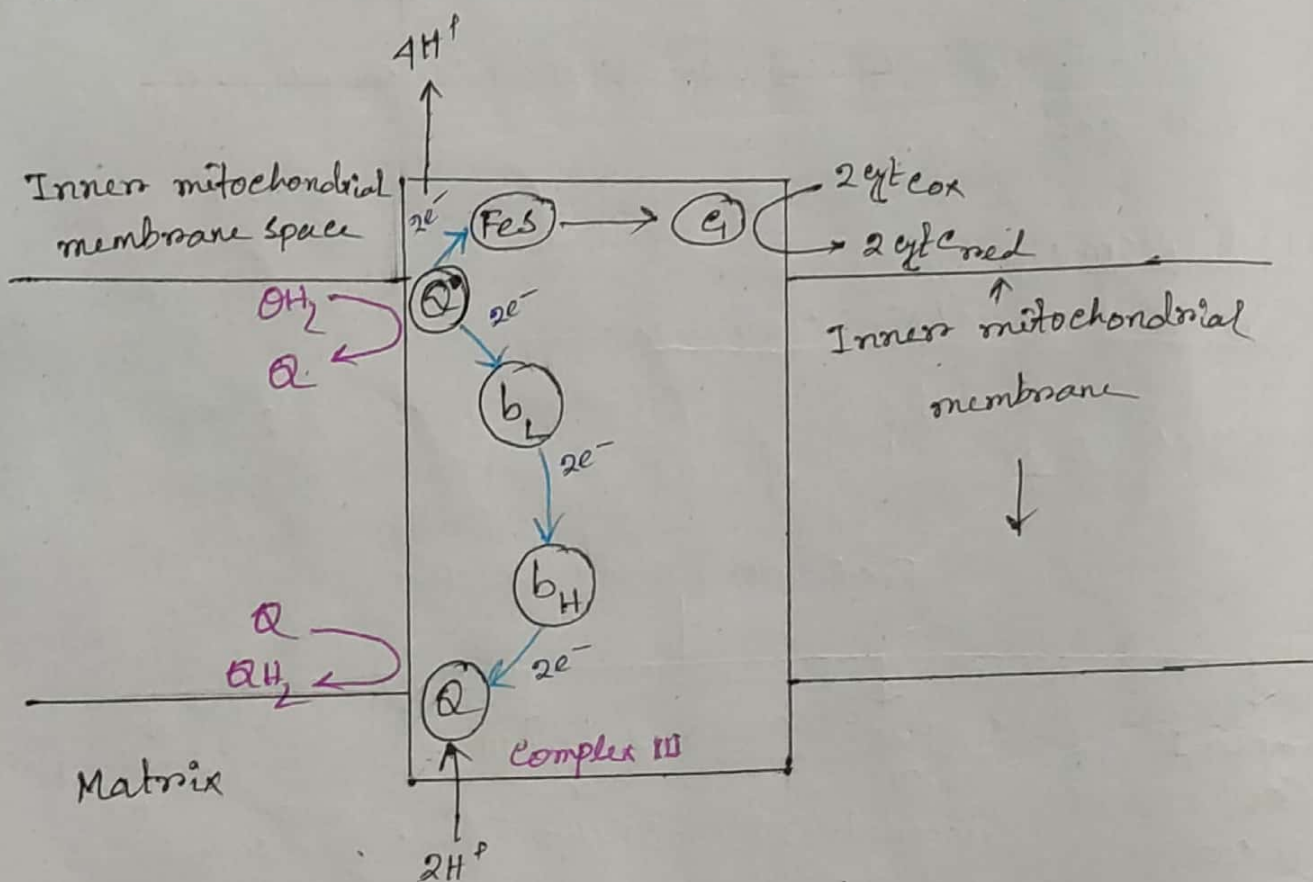 4H⁺
Inner mitochondrial
membrane space
2e⁻
FeS
C₁
2 cyt cox
2 cyt cred
QH₂
Q
Q
2e⁻
Inner mitochondrial
membrane
b_L
2e⁻
b_H
Q
QH₂
2e⁻
Q
Complex III
Matrix
2H⁺